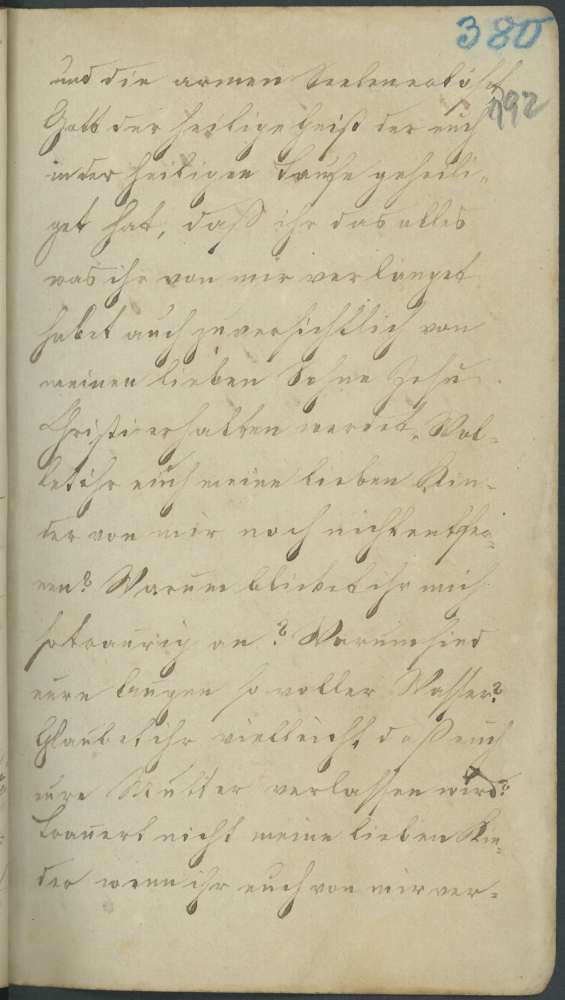 380
192
und die armen Seelen erlöset
Gott der heilige Geist der euch
in der heiligen Taufe geheili-
get hat, daß ihr das alles
was ihr von mir verlanget
habet auch zuversichtlich von
meinen lieben Sohne Jesu
Christi erhalten werdet. Wol-
let ihr euch meine lieben Kin-
der von mir noch nicht entfer-
nen? Warum blicket ihr mich
so traurig an? Warum sind
eure Augen so voller Wasser?
Glaubet ihr vielleicht, daß euch
eure Mutter verlassen wird?
Trauert nicht meine lieben Kin-
der wenn ihr euch von mir ver-